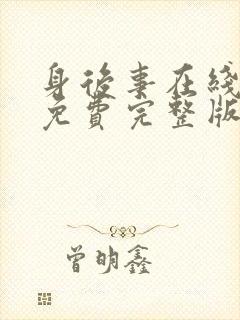 身後事在线
免費完整版
曾明鑫